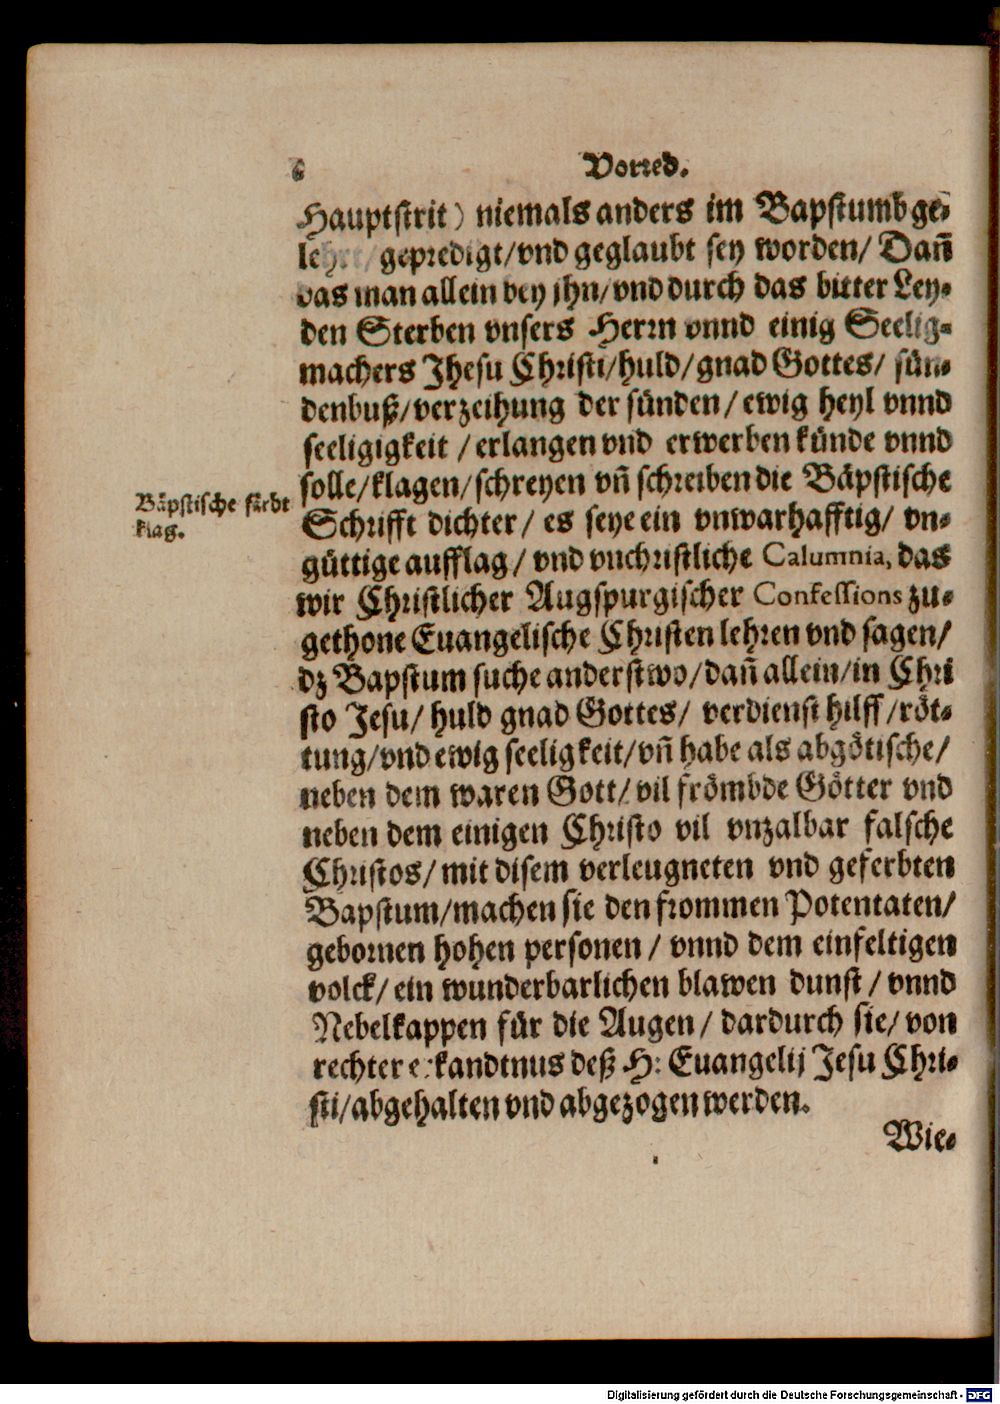 6 Vorred.
Hauptstrit) niemals anders im Bapstumb ge-
gepredigt/vnd geglaubt sey worden/ Dañ
das man allein bey jhn/vnd durch das bitter Ley-
den Sterben vnsers Herrn vnnd einig Seelig-
machers Jhesu Christi/huld/gnad Gottes/ sün-
denbuß/verzeihung der sünden/ewig heyl vnnd
seeligigkeit /erlangen vnd erwerben künde vnnd
solle/klagen/schreyen vñ schreiben die Bäpstische
Schrifft dichter/ es seye ein vnwarhafftig/ vn-
güttige aufflag/ vnd vnchristliche Calumnia, das
wir Christlicher Augspurgischer Confessions zu-
gethone Euangelische Christen lehren vnd sagen/
dz Bapstum suche anderstwo/dañ allein/in Chri
sto Jesu/ huld gnad Gottes/ verdienst hilff/röt-
tung/vnd ewig seeligkeit/vñ habe als abgötische/
neben dem waren Gott/vil frömbde Götter vnd
neben dem einigen Christo vil vnzalbar falsche
Christos/mit disem verleugneten vnd geferbten
Bapstum/machen sie den frommen Potentaten/
gebornen hohen personen / vnnd dem einfeltigen
volck/ein wunderbarlichen blawen dunst / vnnd
Nebelkappen für die Augen/ dardurch sie/von
rechter erkandtnus deß H: Euangelij Jesu Chri-
sti/abgehalten vnd abgezogen werden.
Wie-
Bäpstische färbt
klag.
Digitalisierung gefördert durch die Deutsche Forschungsgemeinschaft - DFG